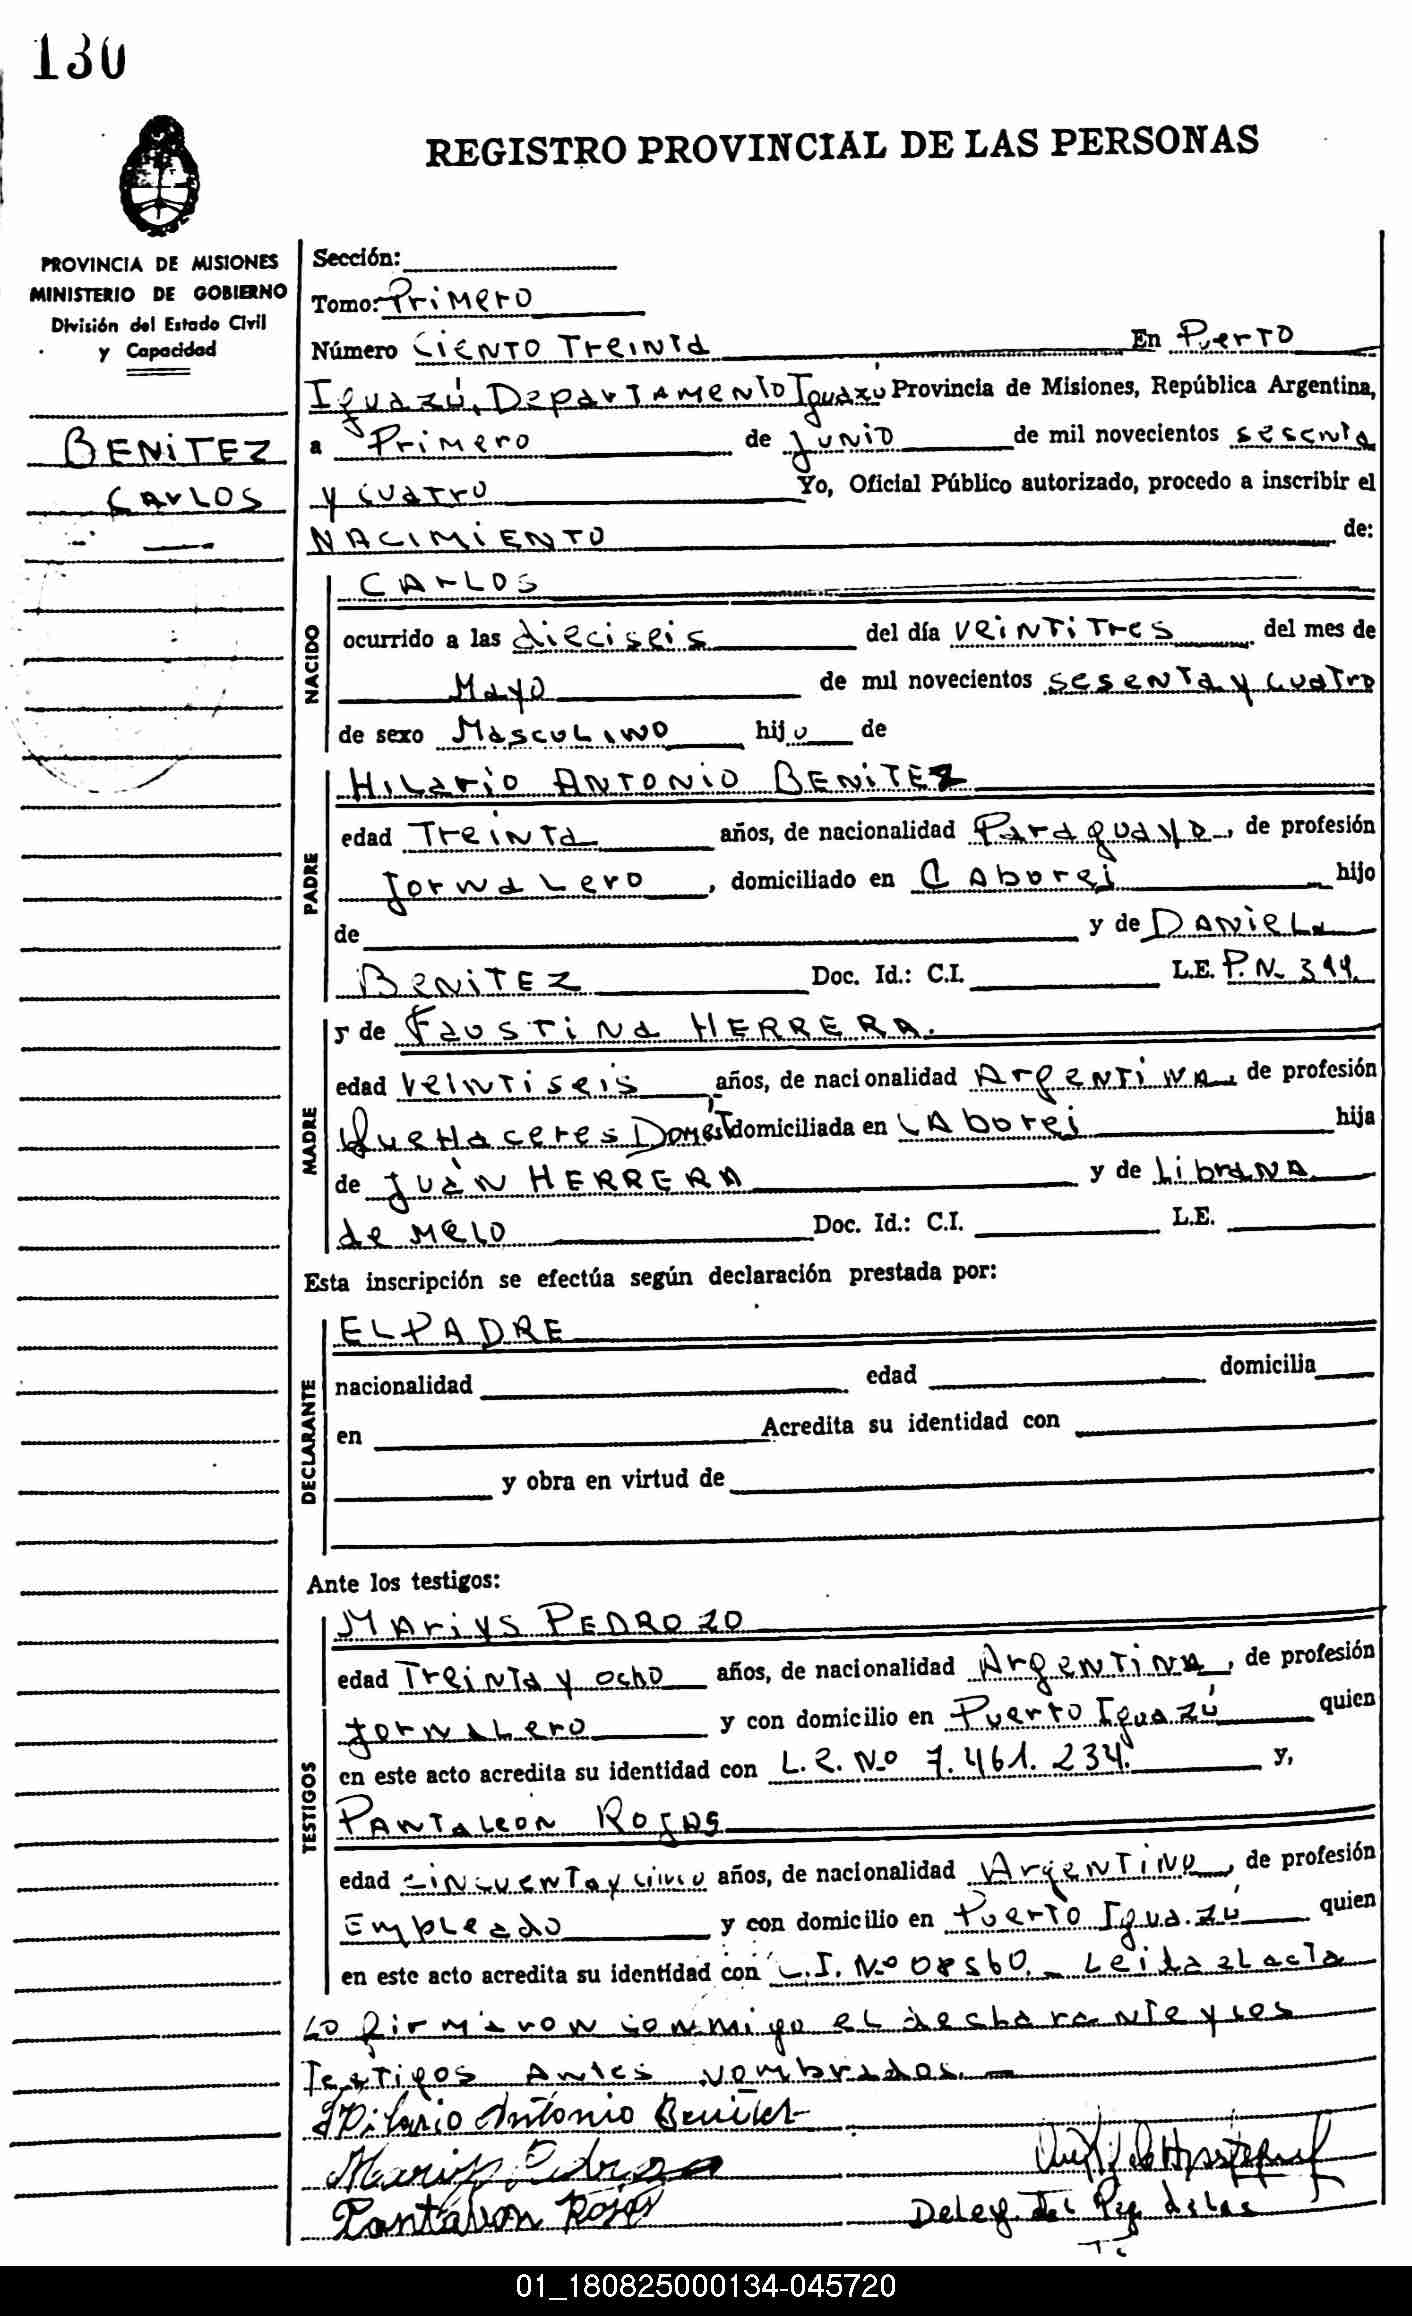 130
REGISTRO PROVINCIAL DE LAS PERSONAS
PROVINCIA DE MISIONES
MINISTERIO DE GOBIERNO
División del Estado Civil
y Capacidad
BENITEZ
CARLOS
Sección:
Tomo: Primero
Número Ciento Treinta En Puerto
Iguazú, Departamento Iguazú Provincia de Misiones, República Argentina,
a Primero de Junio de mil novecientos sesenta
y cuatro Yo, Oficial Público autorizado, procedo a inscribir el
NACIMIENTO de:
NACIDO
CARLOS
ocurrido a las dieciseis del día veintitres del mes de
Mayo de mil novecientos sesenta y cuatro
de sexo Masculino hijo de
PADRE
Hilario ANTONIO BENITEZ
edad Treinta años, de nacionalidad Paraguaya, de profesión
Jornalero, domiciliado en Caborei hijo
de y de Daniela
BENITEZ Doc. Id.: C.I. L.E. P.N. 344.
MADRE
y de Faustina HERRERA.
edad Veintiseis años, de nacionalidad Argentina de profesión
Quehaceres Domést domiciliada en Caborei hija
de Juan HERRERA y de Librana
de Melo Doc. Id.: C.I. L.E.
Esta inscripción se efectúa según declaración prestada por:
DECLARANTE
EL PADRE
nacionalidad edad domicilia
en Acredita su identidad con
y obra en virtud de
Ante los testigos:
TESTIGOS
Mariys PEDROZO
edad Treinta y ocho años, de nacionalidad Argentina, de profesión
Jornalero y con domicilio en Puerto Iguazú quien
en este acto acredita su identidad con L.E. Nº 7.461.234. y,
PANTALEON ROJAS
edad cincuenta y cinco años, de nacionalidad Argentino, de profesión
Empleado y con domicilio en Puerto Iguazú quien
en este acto acredita su identidad con C.I. Nº 08560. Leida el acta
lo firmaron conmigo el declarante y los
Testigos Antes nombrados.
Hilario Antonio Benitez
Mariys Pedrozo
Pantaleon Rojas
Deleg. del Reg. de las
01_180825000134-045720